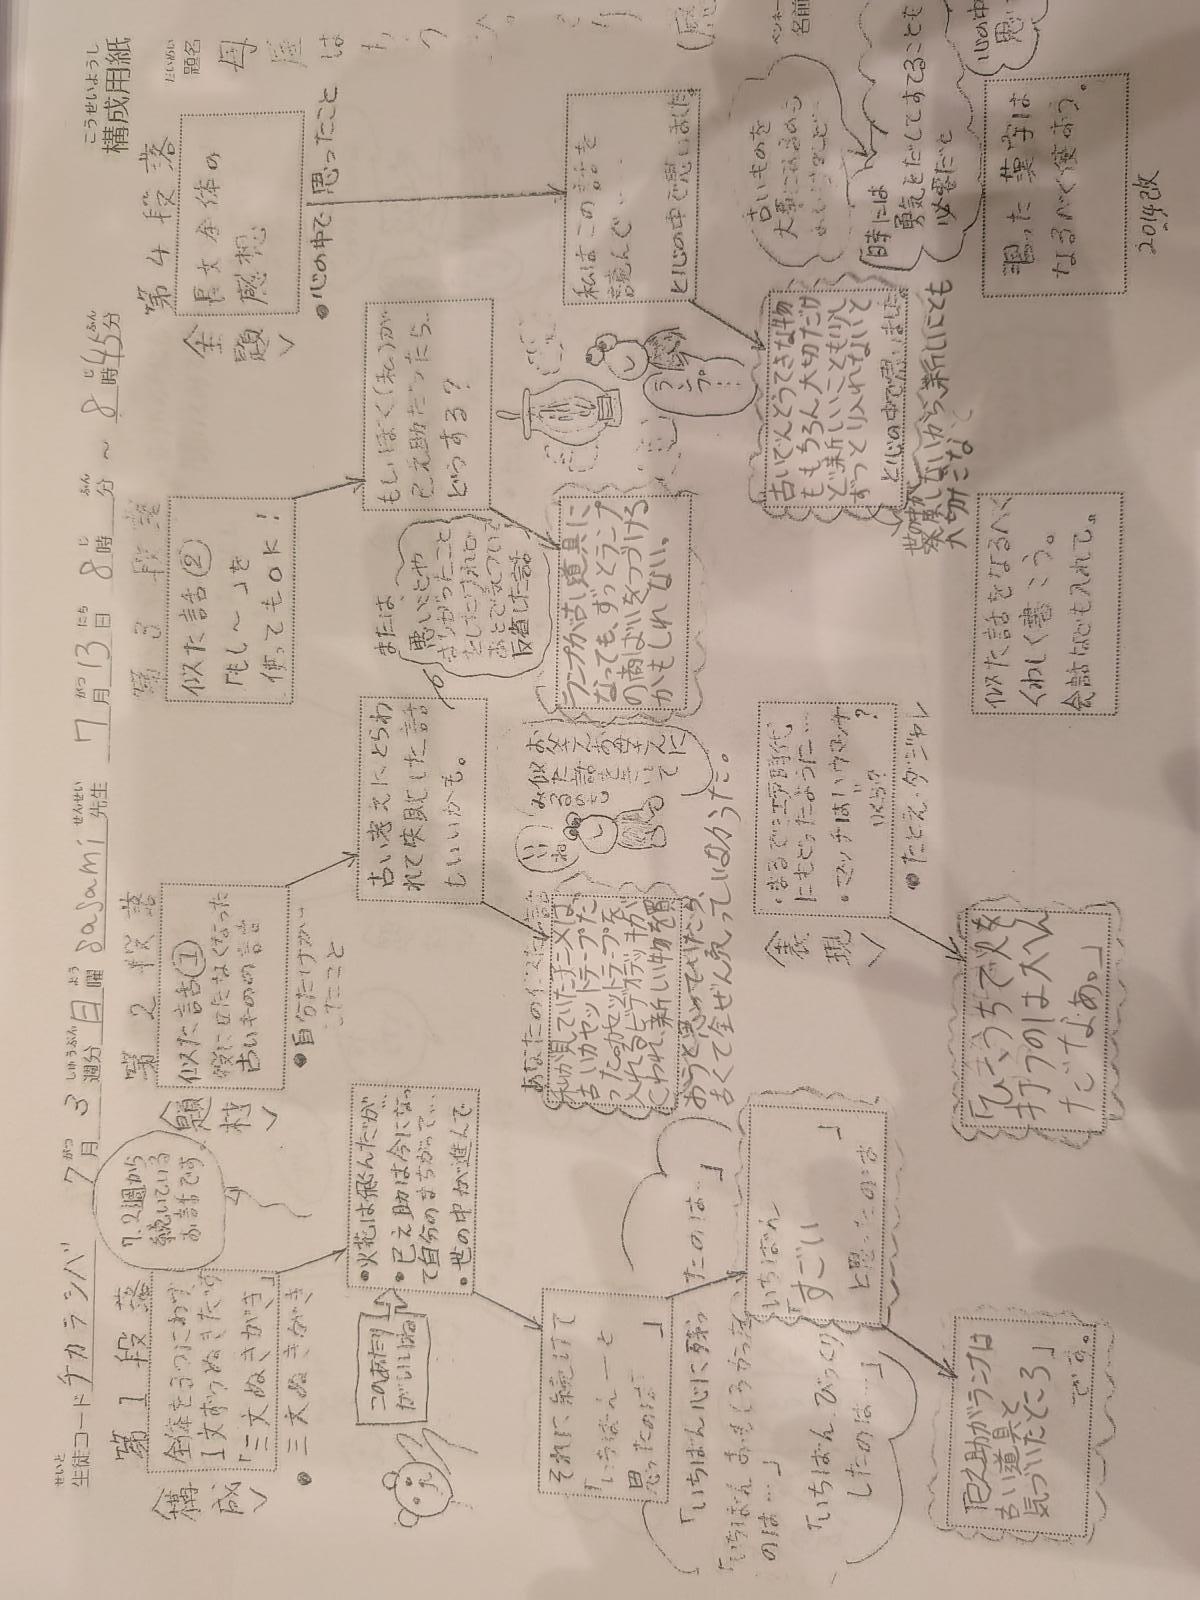 こうせいようし
構成用紙
だいめい
題名
母屋は
生徒コード チカラシバ 7月3週分日曜 sasami 先生 7月13日 8時分～8時45分
せいと
がつ しゅうぶん よう せんせい がつ にち じ ふん じ ふん
第1段落
構成
全体を3つにわけ、
1文ずつぬきだす
「三文ぬきがき」
●三文ぬきがき
7.2週から
続いている
お話です。
このあたり
がいいね
・火花は飛んだが…
・巳之助は今になっ
て自分のまちがって…
・世の中が進んで
それに続けて
「いちばん―と
思ったのは 」
「いちばん心に残っ
たのは…」
「いちばんおもしろかった
のは…」
「いちばんびっくり
したのは…」
いちばん
「すごい 」
と思ったのは
巳之助がランプは
古い道具と
気づいたところ」
です。
第2段落
題材
似た話①
役に立たなくなった
古いものの話
●自分だけがい
したこと
古い考えにとらわ
れて失敗した話
もいいかも。
あなたの
私が見ていたチーズは、
古いカセットテープだ
った。カセットテープを
入れるビデオデッキが
こわれ、新しい物を買
おうと思っていたら、
古くて全ぜん売っていなかった。
いいね
お父さんお母さんに
似た話を聞いて
みるのも
表現
・まるで江戸時代
にもどったように…
・マッチはハウマッチ
いくら?
●たとえ・ダジャレ
「ひうちで火を
打つのは大へん
だなあ。」
第3段落
似た話②
「もし～」を
使ってもOK!
もしぼく(私)が
巳之助だったら…
どうする?
または、
悪いことや
まちがったこと
をしたけれど
あとで気づいて
反省した話
ランプが古い道具に
なっても、ずっとランプ
の商ばいをつづける
かもしれない。
似た話をなるべく
くわしく書こう。
会話なども入れて。
第4段落
主題
長文全体の
感想
●心の中で思ったこと
私はこの話を
読んで…
と心の中で思いました。
ランプ…
古いでんとうてきな物
ももちろん大切だけ
ど新しいことも少し
ずつとり入れないと
と心の中で思いました
世の中が
発展しないから、新しいことも
大切だな
古いものを
大事にするのも
いいけれど…
時には
勇気をだしてすてることも
必要だと
心の中で
思い
習った漢字は
なるべく使おう。
2014改